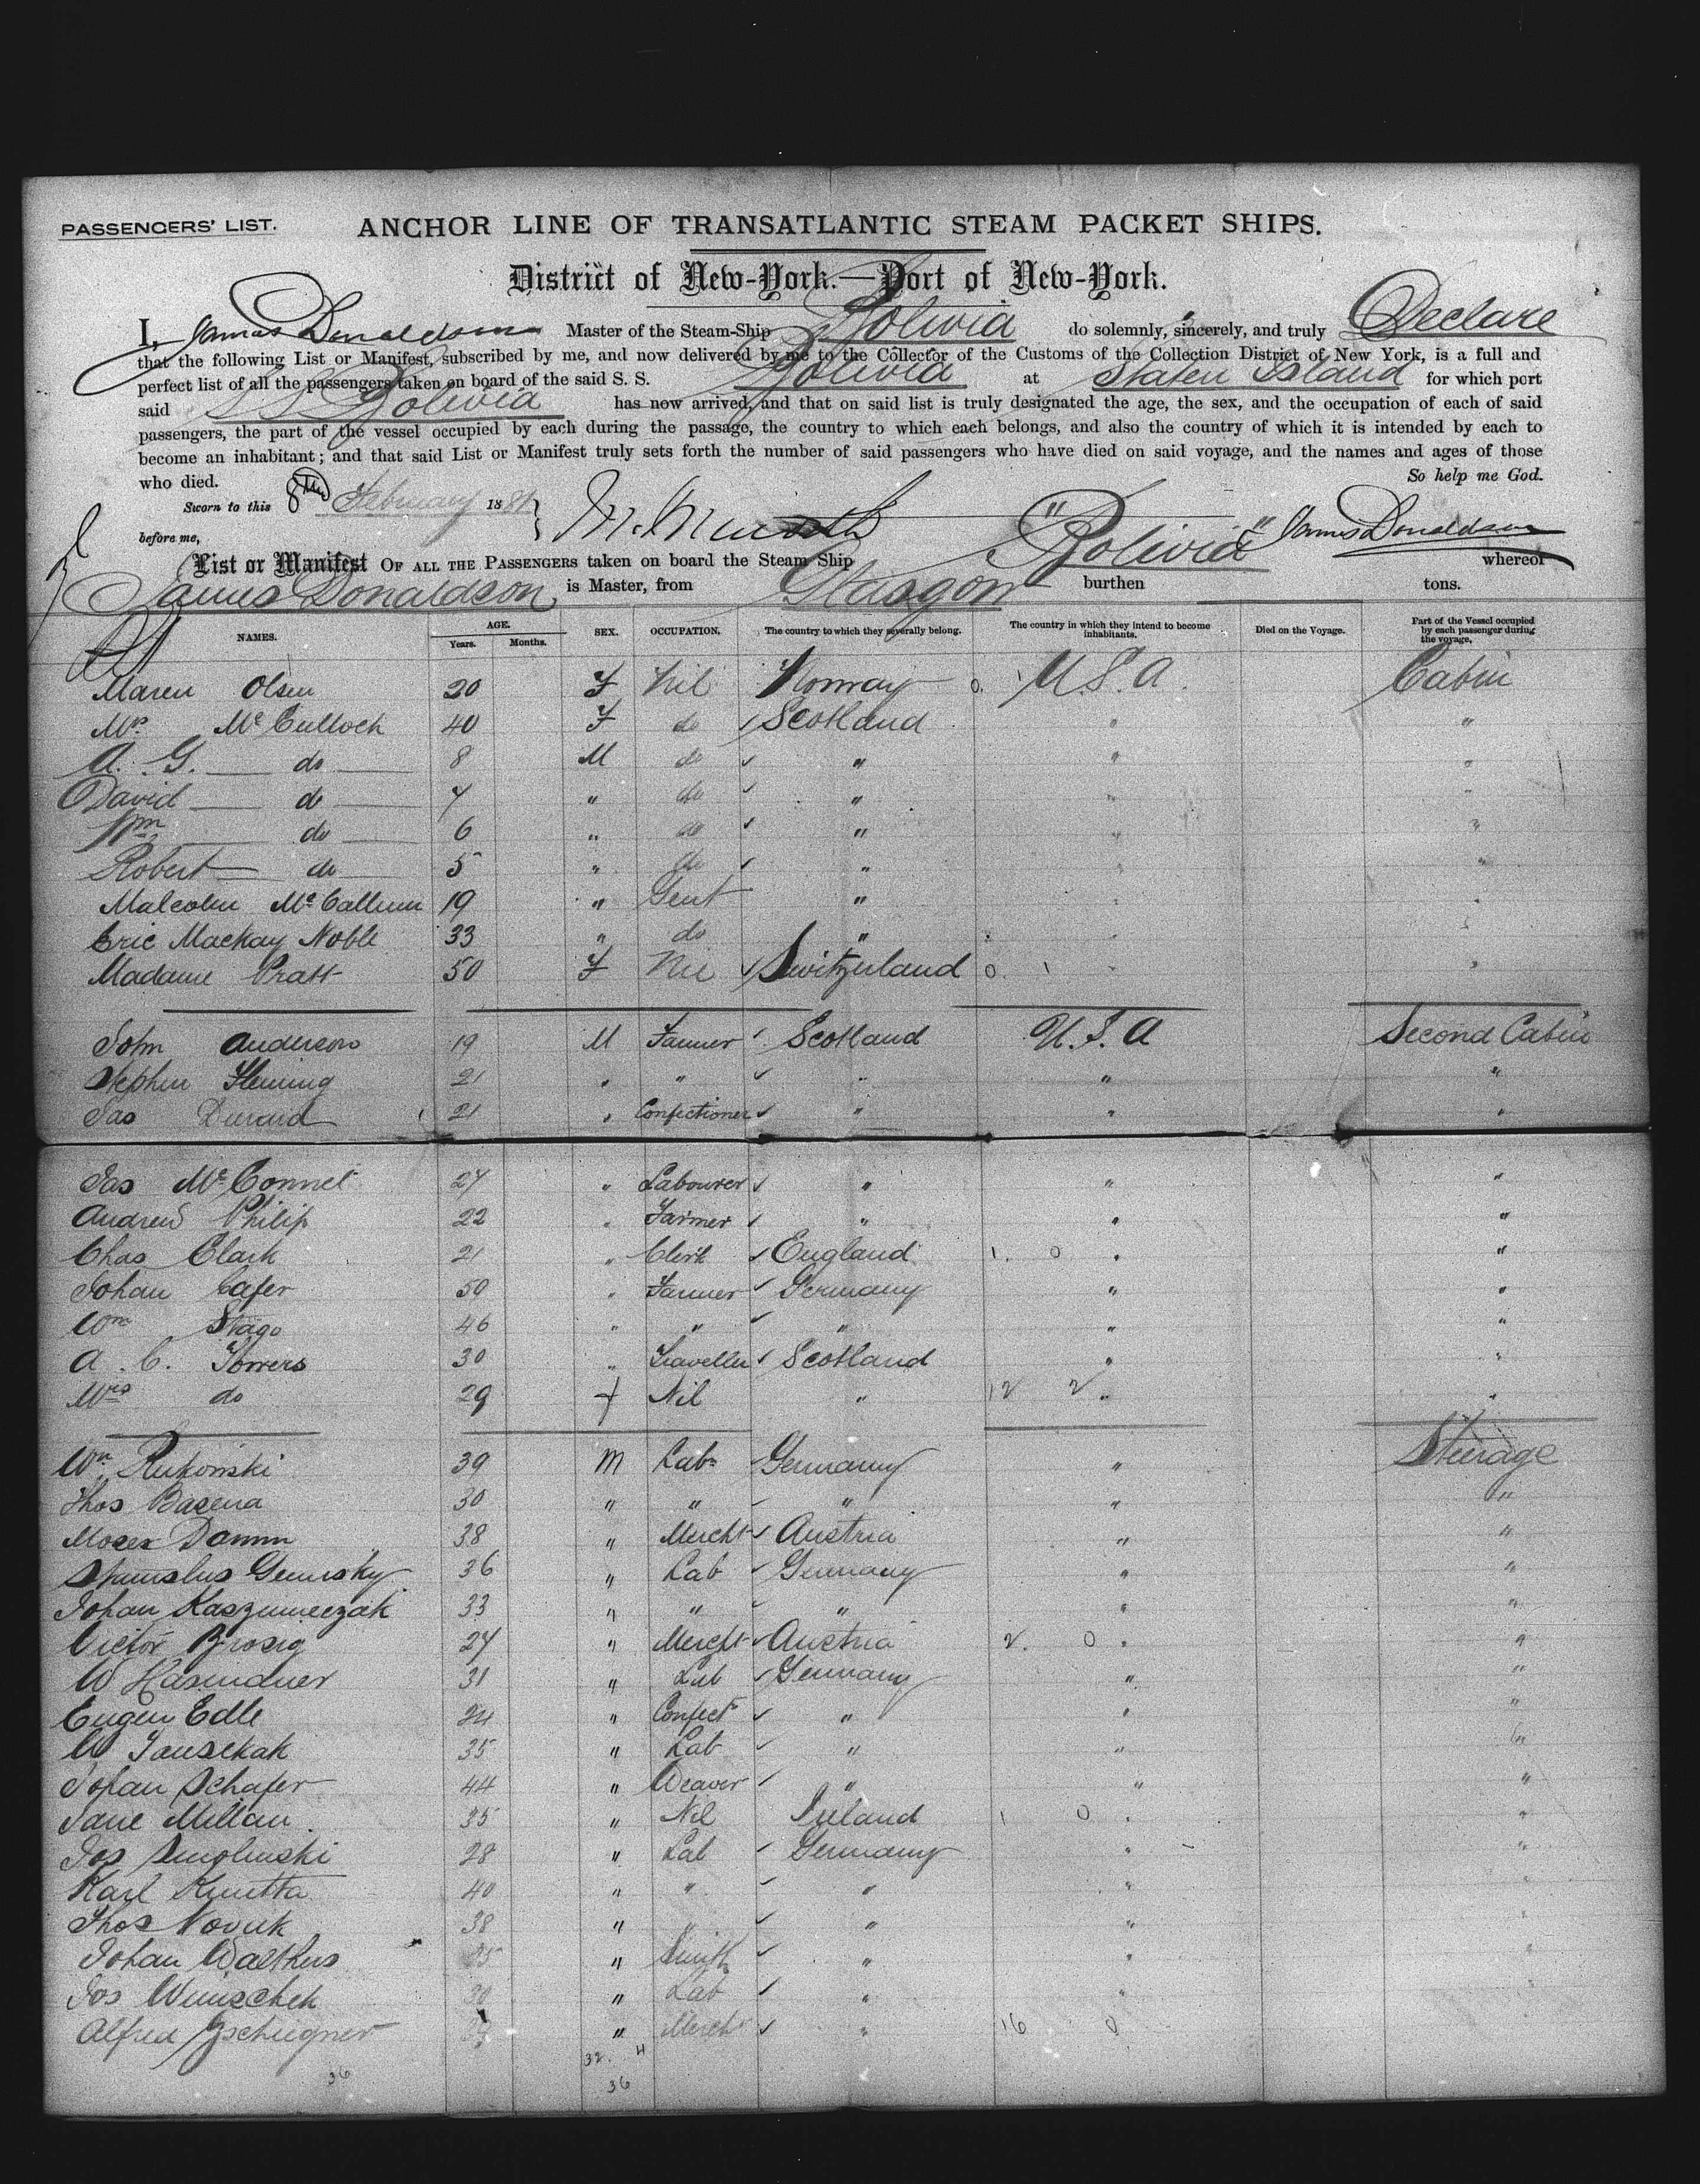 PASSENGERS' LIST.
ANCHOR LINE OF TRANSATLANTIC STEAM PACKET SHIPS.
District of New-York.—Port of New-York.
I, James Donaldson Master of the Steam-Ship Bolivia do solemnly, sincerely, and truly Declare
that the following List or Manifest, subscribed by me, and now delivered by me to the Collector of the Customs of the Collection District of New York, is a full and
perfect list of all the passengers taken on board of the said S. S. Bolivia at Staten Island for which port
said SS Bolivia has now arrived, and that on said list is truly designated the age, the sex, and the occupation of each of said
passengers, the part of the vessel occupied by each during the passage, the country to which each belongs, and also the country of which it is intended by each to
become an inhabitant; and that said List or Manifest truly sets forth the number of said passengers who have died on said voyage, and the names and ages of those
who died. So help me God.
Sworn to this 8th February 188
before me, James Donaldson
List or Manifest OF ALL THE PASSENGERS taken on board the Steam Ship "Bolivia" whereof
James Donaldson is Master, from Glasgow burthen tons.
NAMES. AGE. Years. Months. SEX. OCCUPATION. The country to which they severally belong. The country in which they intend to become inhabitants. Died on the Voyage. Part of the Vessel occupied by each passenger during the voyage.
Maren Olsen 20 F Nil Norway 0 1 U.S.A. Cabin
Mrs McCulloch 40 F do Scotland " "
A. G. do 8 M do " " "
David do 7 " do " " "
Wm do 6 " do " " "
Robert do 5 " do " " "
Malcolm McCallum 19 " Gent " " "
Eric Mackay Noble 33 " do " " "
Madame Pratt 50 F Nil Switzerland 0 1 " "
John Anderson 19 M Farmer Scotland U.S.A Second Cabin
Stephen Fleming 21 " " " " "
Jas Durand 21 " Confectioner " " "
Jas McConnel 27 " Labourer " " "
Andrew Philip 22 " Farmer " " "
Chas Clark 21 " Clerk England 1 0 " "
Johan Cafer 50 " Farmer Germany " "
Wm Stago 46 " " " " "
A. C. Towers 30 " Traveller Scotland " "
Mrs do 29 f Nil " 12 2 " "
Wm Rukowski 39 M Labr Germany " Steerage
Thos Basena 30 " " " " "
Moses Damm 38 " Mercht Austria " "
Stanislus 36 " Lab Germany " "
Johan Kaszumeczak 33 " " " " "
Victor Brosig 27 " Mercht Austria 2. 0 " "
W Hasendner 31 " Lab Germany " "
Eugen Edle 24 " Confect " " "
W 35 " Lab " " "
Johan Schafer 44 " Weaver " " "
Jane Millan. 35 " Nil Ireland 1 0 " "
Jos Smolinski 28 " Lab Germany " "
Karl Knutta 40 " " " " "
Thos Novuk 38 " " " " "
Johan Walthers " Smith " " "
Jos Wunschek 30 " Lab " "
Alfred " Mercht " 16 0
36 32. 4
36